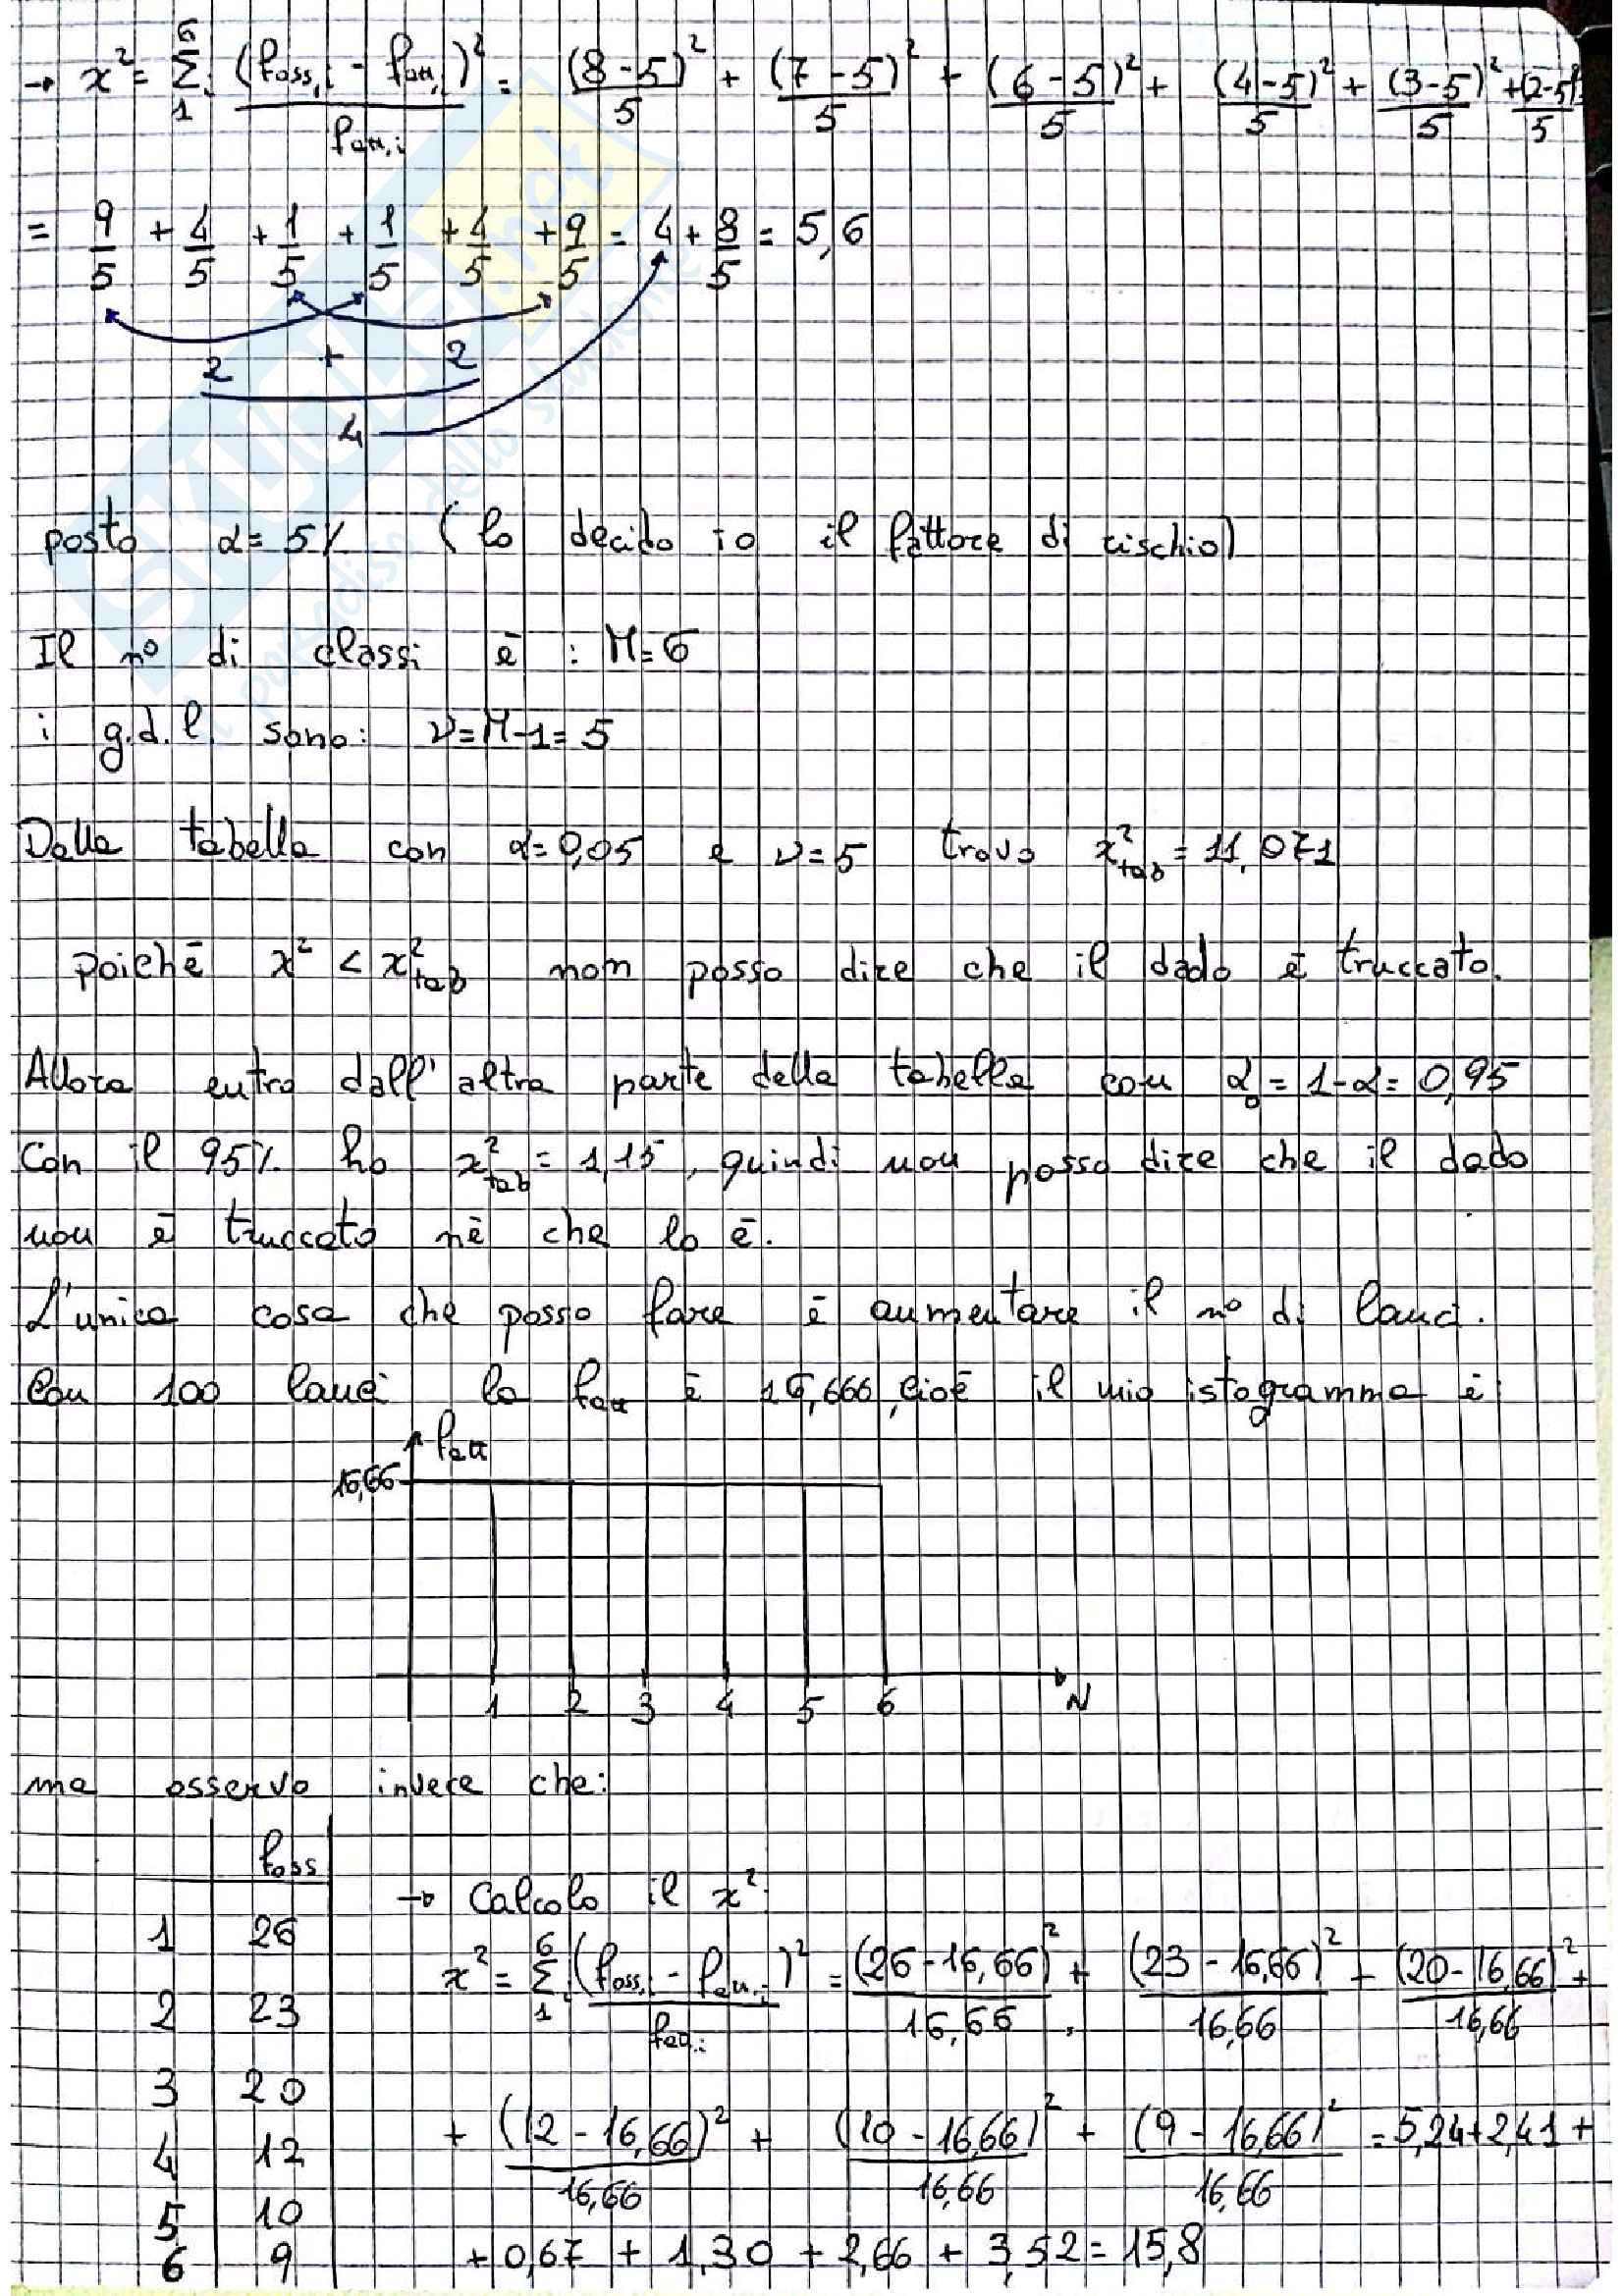 → x² = Σ₁⁶ᵢ (f_oss,i - f_att,i)² / f_att,i = (8-5)²/5 + (7-5)²/5 + (6-5)²/5 + (4-5)²/5 + (3-5)²/5 + (2-5)²/5
= 9/5 + 4/5 + 1/5 + 1/5 + 4/5 + 9/5 = 4 + 8/5 = 5,6
2 + 2
4
posto α = 5% (lo decido io il fattore di rischio)
Il n° di classi è : M = 6
i g.d.l. sono: ν = M-1 = 5
Dalla tabella con α = 0,05 e ν = 5 trovo x²_tab = 11,071
poichè x² < x²_tab non posso dire che il dado è truccato.
Allora entro dall'altra parte della tabella con α₀ = 1-α = 0,95
Con il 95% ho x²_tab = 1,15, quindi non posso dire che il dado
non è truccato nè che lo è.
L'unica cosa che posso fare è aumentare il n° di lanci.
Con 100 lanci la f_att è 16,666, cioè il mio istogramma è
f_att
16,66
1 2 3 4 5 6 N
ma osservo invece che:
f_oss
→ Calcolo il x²:
1 26
x² = Σ₁⁶ᵢ (f_oss,i - f_att,i)² / f_att,i = (26-16,66)²/16,66 + (23-16,66)²/16,66 + (20-16,66)²/16,66 +
2 23
3 20
+ (12-16,66)²/16,66 + (10-16,66)²/16,66 + (9-16,66)²/16,66 = 5,24 + 2,41 +
4 12
5 10
6 9
+ 0,67 + 1,30 + 2,66 + 3,52 = 15,8
SKUOLA.net
il paradiso dello studente